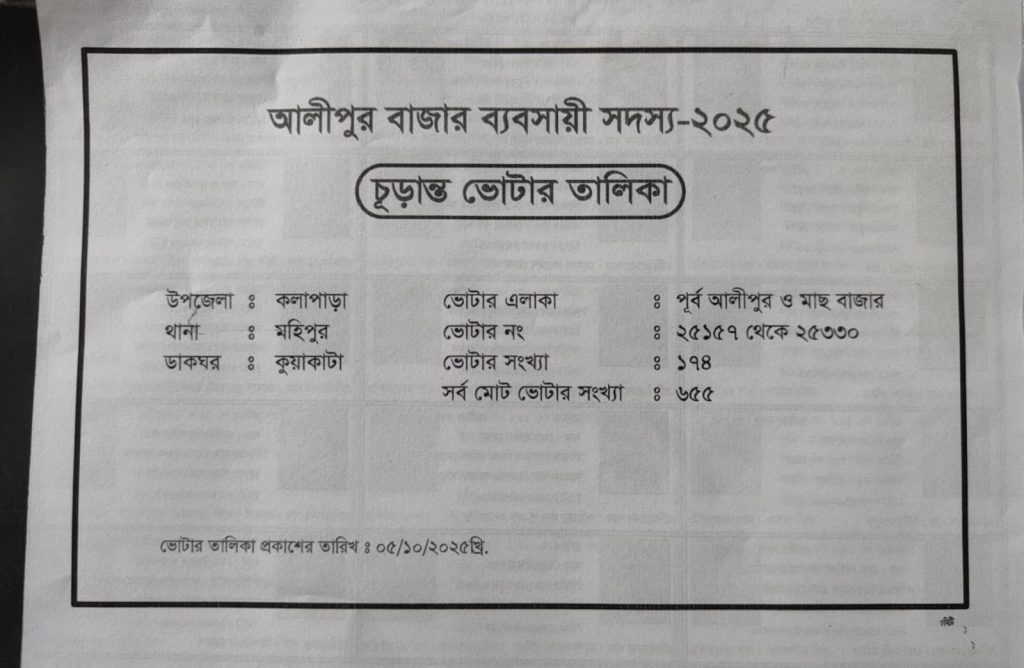 আলীপুর বাজার ব্যবসায়ী সদস্য-২০২৫
চূড়ান্ত ভোটার তালিকা
উপজেলা ঃ কলাপাড়া ভোটার এলাকা ঃ পূর্ব আলীপুর ও মাছ বাজার
থানা ঃ মহিপুর ভোটার নং ঃ ২৫১৫৭ থেকে ২৫৩৩০
ডাকঘর ঃ কুয়াকাটা ভোটার সংখ্যা ঃ ১৭৪
সর্ব মোট ভোটার সংখ্যা ঃ ৬৫৫
ভোটার তালিকা প্রকাশের তারিখ ঃ ০৫/১০/২০২৫খ্রি.